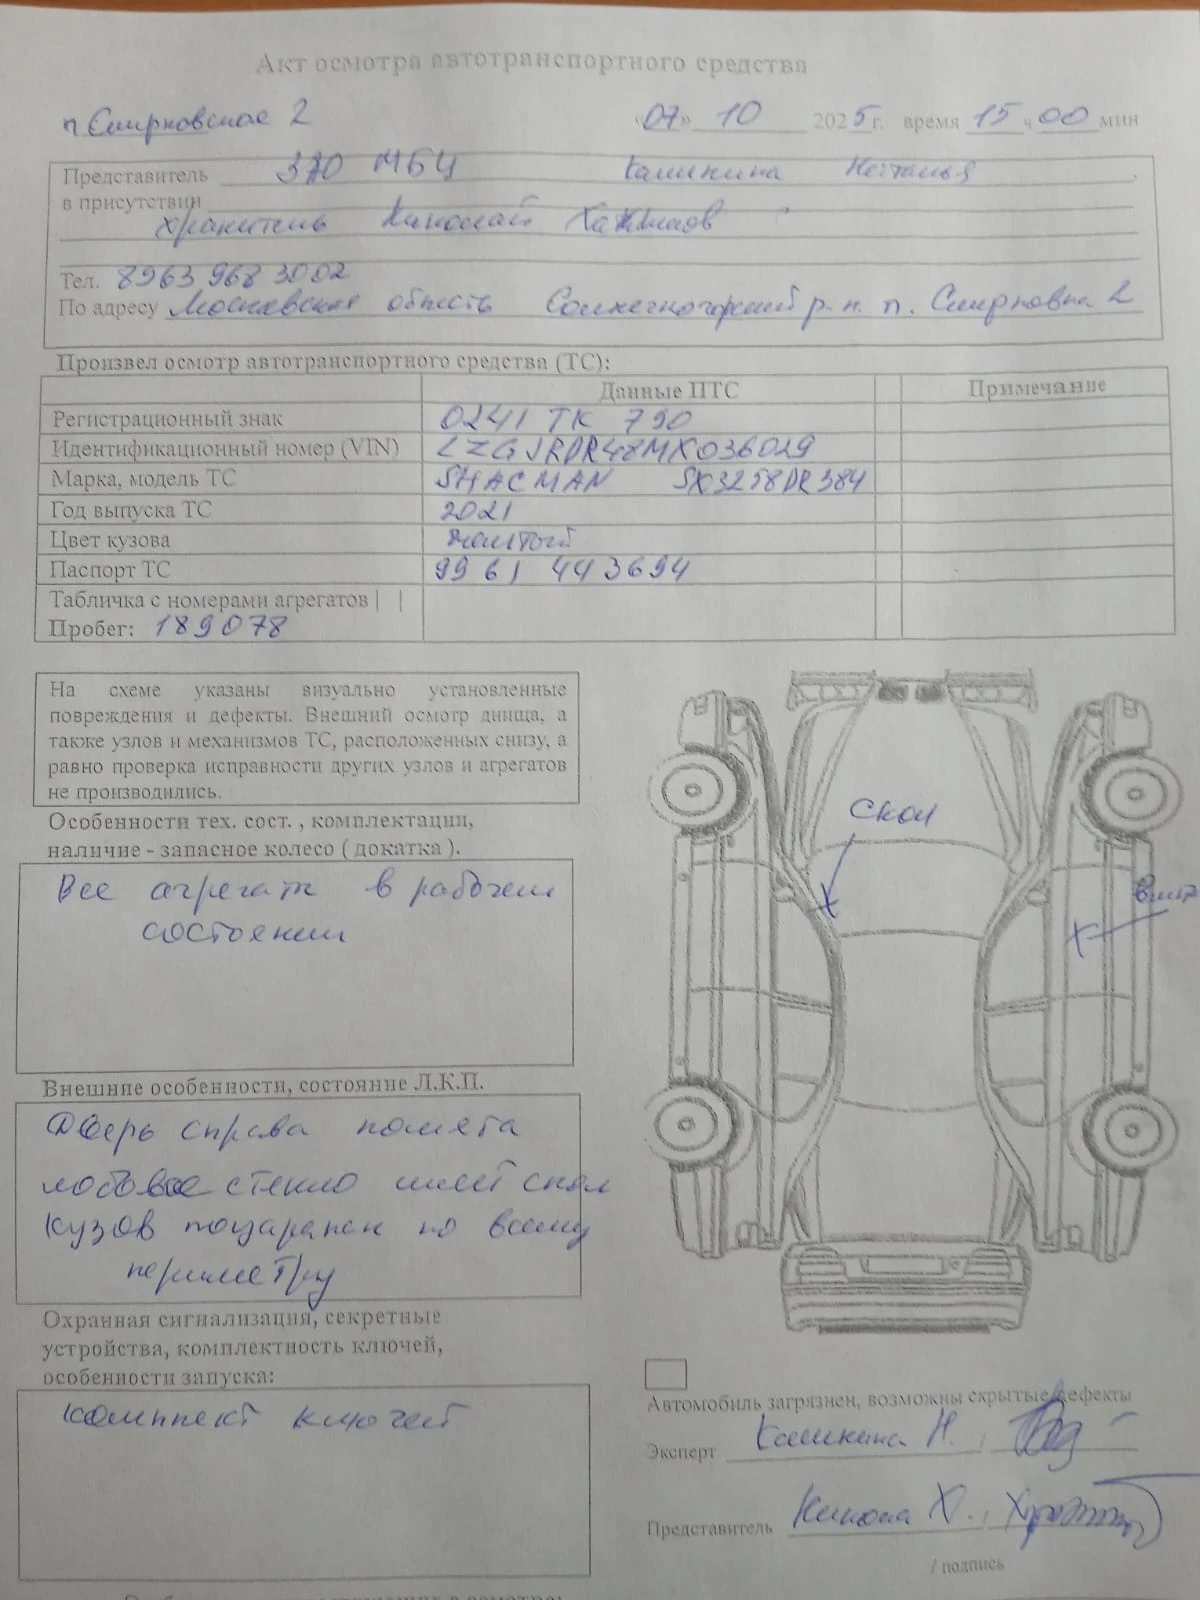 Акт осмотра автотранспортного средства
п. Смирновское 2 «07» 10 2025 г. время 15 ч 00 мин
Представитель МБЦ Калинина Наталья
в присутствии
хранитель Николай
Тел. 8963 968 3002
По адресу Московская область Солнечногорский р-н. п. Смирновка 2
Произвел осмотр автотранспортного средства (ТС):
Данные ПТС Примечание
Регистрационный знак О241 ТК 790
Идентификационный номер (VIN) LZGJRDR48MX036029
Марка, модель ТС SHACMAN SX3258DR384
Год выпуска ТС 2021
Цвет кузова желтый
Паспорт ТС 9961 443694
Табличка с номерами агрегатов | |
Пробег: 189078
На схеме указаны визуально установленные
повреждения и дефекты. Внешний осмотр днища, а
также узлов и механизмов ТС, расположенных снизу, а
равно проверка исправности других узлов и агрегатов
не производились.
Особенности тех. сост. , комплектации,
наличие - запасное колесо ( докатка ).
Все агрегаты в рабочем
состоянии
скол
вмят
Внешние особенности, состояние Л.К.П.
Дверь справа помята
лобовое стекло имеет скол
кузов поцарапан по всему
периметру
Охранная сигнализация, секретные
устройства, комплектность ключей,
особенности запуска:
комплект ключей
Автомобиль загрязнен, возможны скрытые дефекты
Эксперт Калинина Н.
Представитель
/ подпись